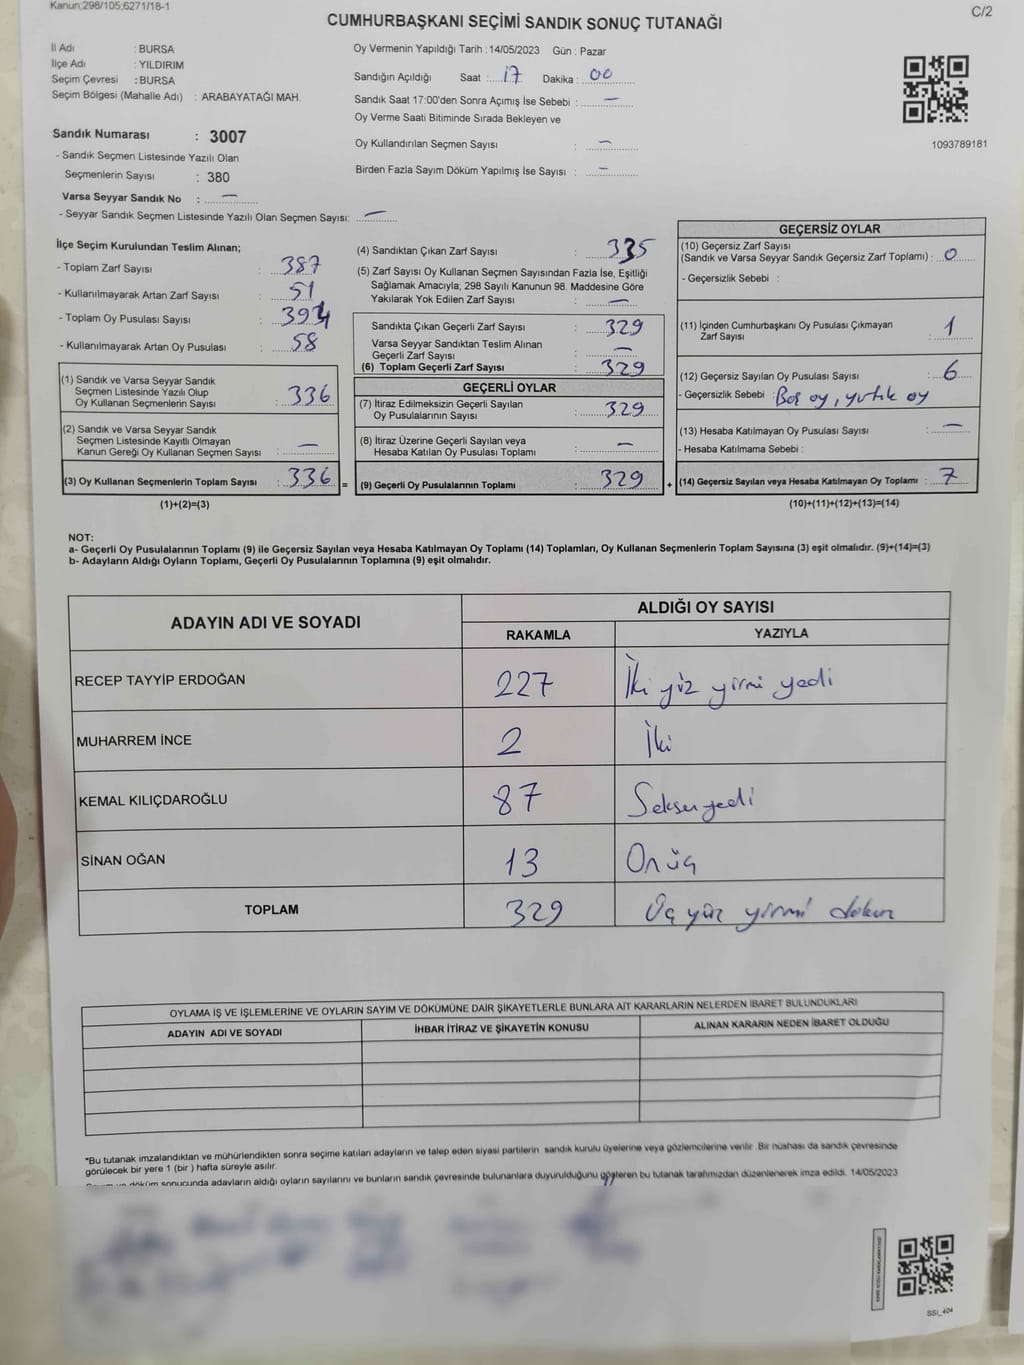 Kanun;298/105;6271/18-1
C/2
CUMHURBAŞKANI SEÇİMİ SANDIK SONUÇ TUTANAĞI
İl Adı : BURSA
İlçe Adı : YILDIRIM
Seçim Çevresi : BURSA
Seçim Bölgesi (Mahalle Adı) : ARABAYATAĞI MAH.
Oy Vermenin Yapıldığı Tarih : 14/05/2023 Gün : Pazar
Sandığın Açıldığı Saat : 17 Dakika : 00
Sandık Saat 17:00'den Sonra Açımış İse Sebebi : —
Oy Verme Saati Bitiminde Sırada Bekleyen ve
Oy Kullandırılan Seçmen Sayısı : —
Birden Fazla Sayım Döküm Yapılmış İse Sayısı : —
1093789181
Sandık Numarası : 3007
- Sandık Seçmen Listesinde Yazılı Olan
Seçmenlerin Sayısı : 380
Varsa Seyyar Sandık No : —
- Seyyar Sandık Seçmen Listesinde Yazılı Olan Seçmen Sayısı: —
İlçe Seçim Kurulundan Teslim Alınan;
- Toplam Zarf Sayısı : 387
- Kullanılmayarak Artan Zarf Sayısı : 51
- Toplam Oy Pusulası Sayısı : 394
- Kullanılmayarak Artan Oy Pusulası : 58
(1) Sandık ve Varsa Seyyar Sandık
Seçmen Listesinde Yazılı Olup
Oy Kullanan Seçmenlerin Sayısı : 336
(2) Sandık ve Varsa Seyyar Sandık
Seçmen Listesinde Kayıtlı Olmayan
Kanun Gereği Oy Kullanan Seçmen Sayısı : —
(3) Oy Kullanan Seçmenlerin Toplam Sayısı : 336 =
(1)+(2)=(3)
(4) Sandıktan Çıkan Zarf Sayısı : 335
(5) Zarf Sayısı Oy Kullanan Seçmen Sayısından Fazla İse, Eşitliği
Sağlamak Amacıyla; 298 Sayılı Kanunun 98. Maddesine Göre
Yakılarak Yok Edilen Zarf Sayısı : —
Sandıkta Çıkan Geçerli Zarf Sayısı : 329
Varsa Seyyar Sandıktan Teslim Alınan
Geçerli Zarf Sayısı : —
(6) Toplam Geçerli Zarf Sayısı : 329
GEÇERLİ OYLAR
(7) İtiraz Edilmeksizin Geçerli Sayılan
Oy Pusulalarının Sayısı : 329
(8) İtiraz Üzerine Geçerli Sayılan veya
Hesaba Katılan Oy Pusulası Toplamı : —
(9) Geçerli Oy Pusulalarının Toplamı : 329 +
GEÇERSİZ OYLAR
(10) Geçersiz Zarf Sayısı
(Sandık ve Varsa Seyyar Sandık Geçersiz Zarf Toplamı) : 0
- Geçersizlik Sebebi :
(11) İçinden Cumhurbaşkanı Oy Pusulası Çıkmayan
Zarf Sayısı : 1
(12) Geçersiz Sayılan Oy Pusulası Sayısı : 6
- Geçersizlik Sebebi : Boş oy, yırtık oy
(13) Hesaba Katılmayan Oy Pusulası Sayısı : —
- Hesaba Katılmama Sebebi :
(14) Geçersiz Sayılan veya Hesaba Katılmayan Oy Toplamı : 7
(10)+(11)+(12)+(13)=(14)
NOT:
a- Geçerli Oy Pusulalarının Toplamı (9) ile Geçersiz Sayılan veya Hesaba Katılmayan Oy Toplamı (14) Toplamları, Oy Kullanan Seçmenlerin Toplam Sayısına (3) eşit olmalıdır. (9)+(14)=(3)
b- Adayların Aldığı Oyların Toplamı, Geçerli Oy Pusulalarının Toplamına (9) eşit olmalıdır.
ADAYIN ADI VE SOYADI
ALDIĞI OY SAYISI
RAKAMLA YAZIYLA
RECEP TAYYİP ERDOĞAN 227 İki yüz yirmi yedi
MUHARREM İNCE 2 İki
KEMAL KILIÇDAROĞLU 87 Seksenyedi
SİNAN OĞAN 13 Onüç
TOPLAM 329 Üç yüz yirmi dokuz
OYLAMA İŞ VE İŞLEMLERİNE VE OYLARIN SAYIM VE DÖKÜMÜNE DAİR ŞİKAYETLERLE BUNLARA AİT KARARLARIN NELERDEN İBARET BULUNDUKLARI
ADAYIN ADI VE SOYADI İHBAR İTİRAZ VE ŞİKAYETİN KONUSU ALINAN KARARIN NEDEN İBARET OLDUĞU
*Bu tutanak imzalandıktan ve mühürlendikten sonra seçime katılan adayların ve talep eden siyasi partilerin sandık kurulu üyelerine veya gözlemcilerine verilir. Bir nüshası da sandık çevresinde
görülecek bir yere 1 (bir) hafta süreyle asılır.
ve döküm sonucunda adayların aldığı oyların sayılarını ve bunların sandık çevresinde bulunanlara duyurulduğunu gösteren bu tutanak tarafımızdan düzenlenerek imza edildi. 14/05/2023
SSI_404